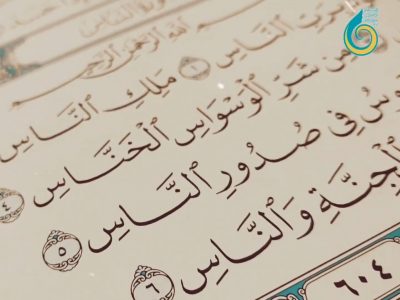 بِسْمِ ٱللَّهِ ٱلرَّحْمَٰنِ ٱلرَّحِيمِ
بِرَبِّ ٱلنَّاسِ ١ مَلِكِ ٱلنَّاسِ
مِن شَرِّ ٱلْوَسْوَاسِ ٱلْخَنَّاسِ ٤
فِى صُدُورِ ٱلنَّاسِ ٥
ٱلْجِنَّةِ وَٱلنَّاسِ ٦
٦٠٤